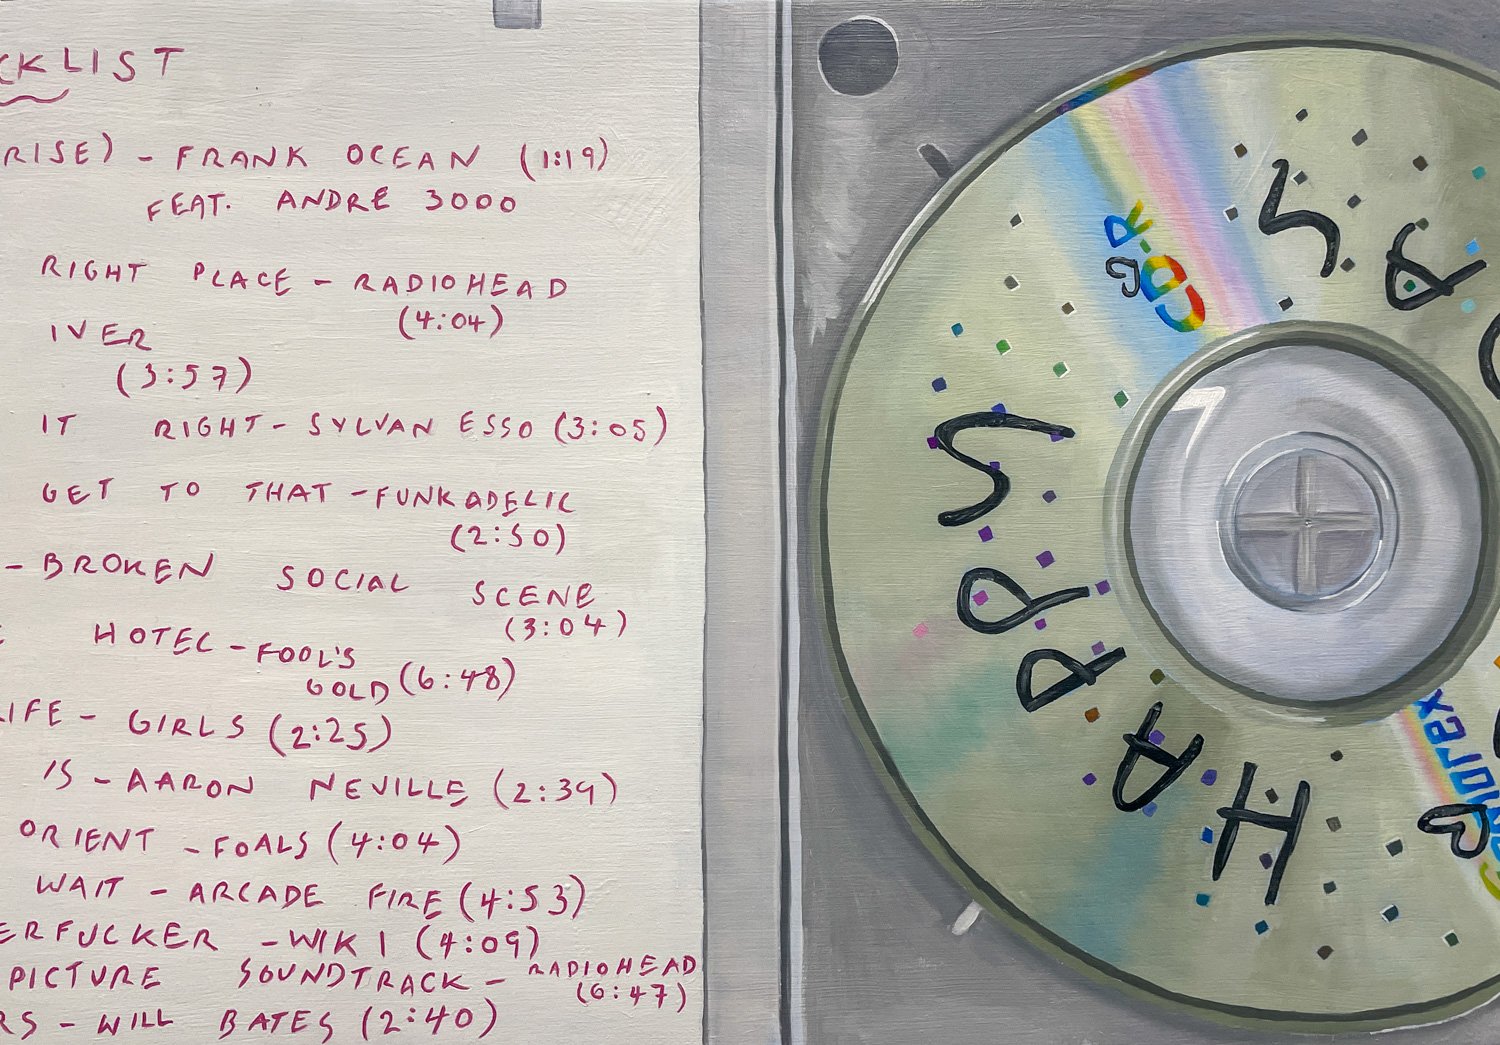 CKLIST
RISE) - FRANK OCEAN (1:19)
FEAT. ANDRE 3000
RIGHT PLACE - RADIOHEAD
(4:04)
IVER
(3:57)
IT RIGHT - SYLVAN ESSO (3:05)
GET TO THAT - FUNKADELIC
(2:50)
- BROKEN SOCIAL SCENE
(3:04)
HOTEL - FOOL'S
GOLD (6:48)
LIFE - GIRLS (2:25)
IS - AARON NEVILLE (2:39)
ORIENT - FOALS (4:04)
WAIT - ARCADE FIRE (4:53)
ERFUCKER - WIKI (4:09)
PICTURE SOUNDTRACK - RADIOHEAD
(6:47)
RS - WILL BATES (2:40)
CD-R
HAPPY